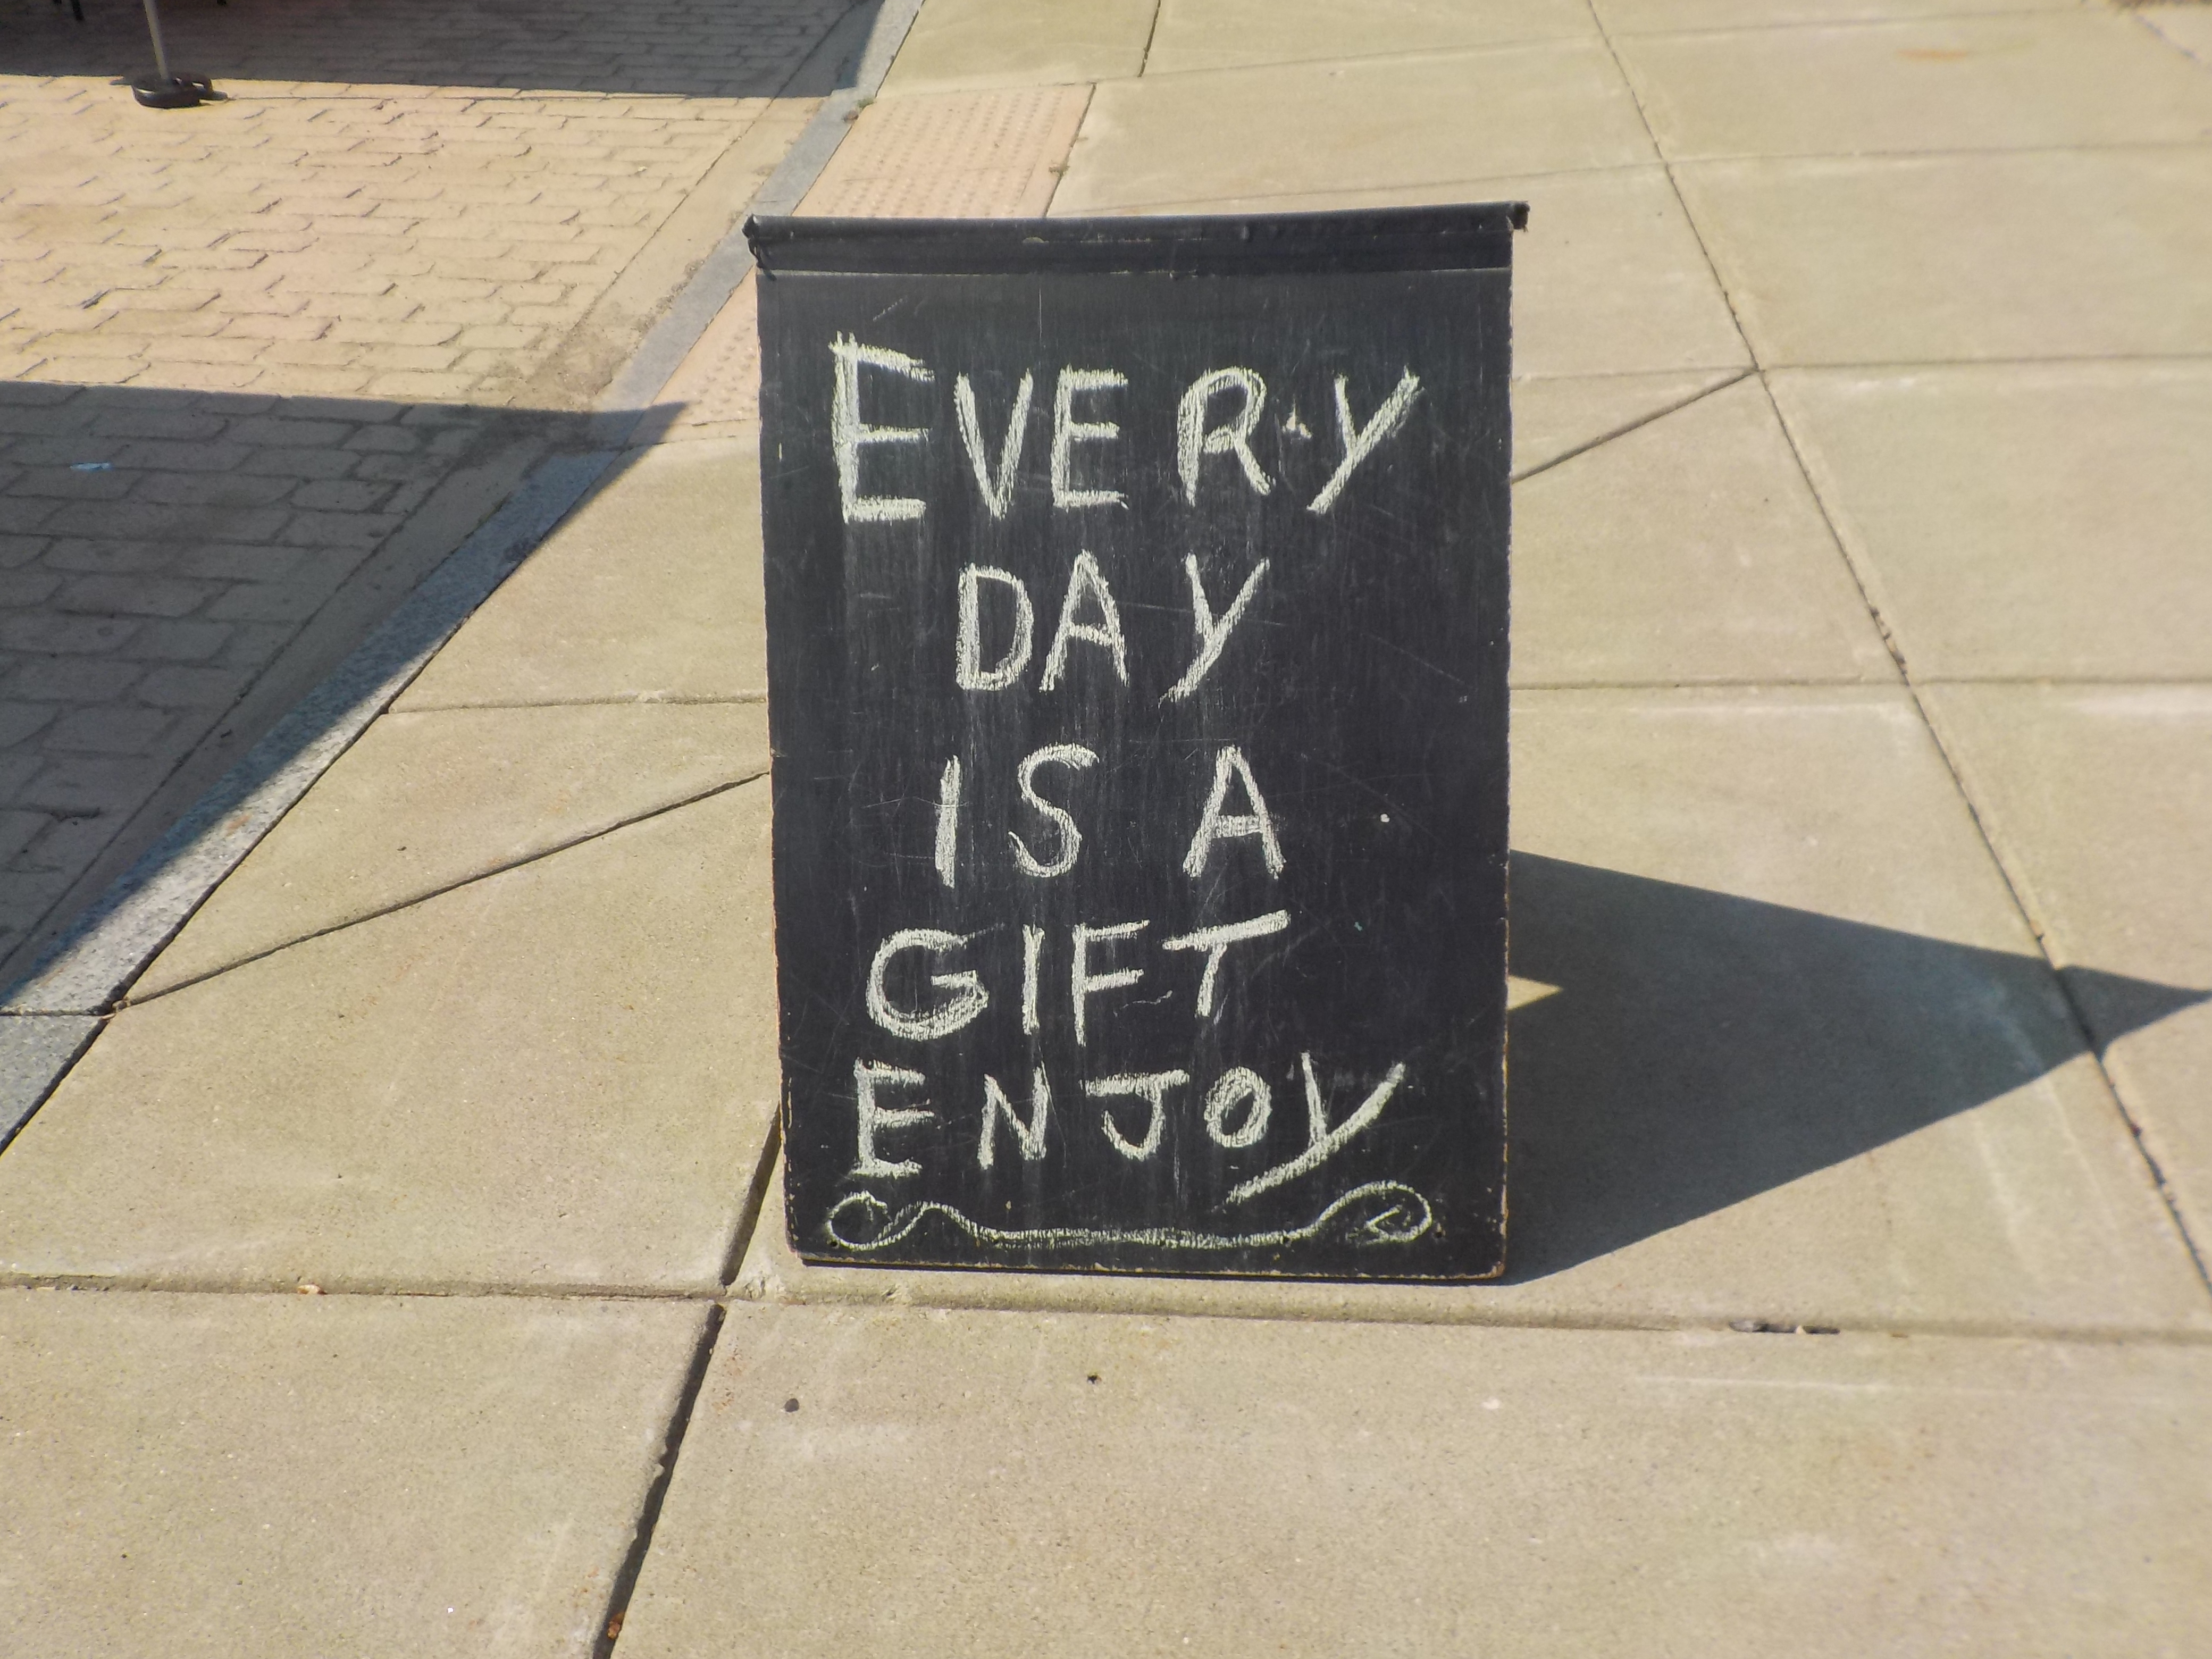 EVERY
DAY
IS A
GIFT
ENJOY